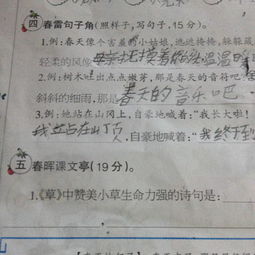 四 春雷句子角(照样子,写句子,15分)。
1.例:春天像个害羞的小姑娘,遮遮掩掩,躲躲藏
轻柔的风像
2.例:树木吐出点点嫩芽,那是春天的音符吧
斜斜的细雨,那是春天的音乐吧
3.例:她站在山冈上,自豪地喊着:"我长大啦!
我站在山顶,自豪地喊着:"我终于到
五 春晖课文亭(19分)。
1.《草》中赞美小草生命力强的诗句是: